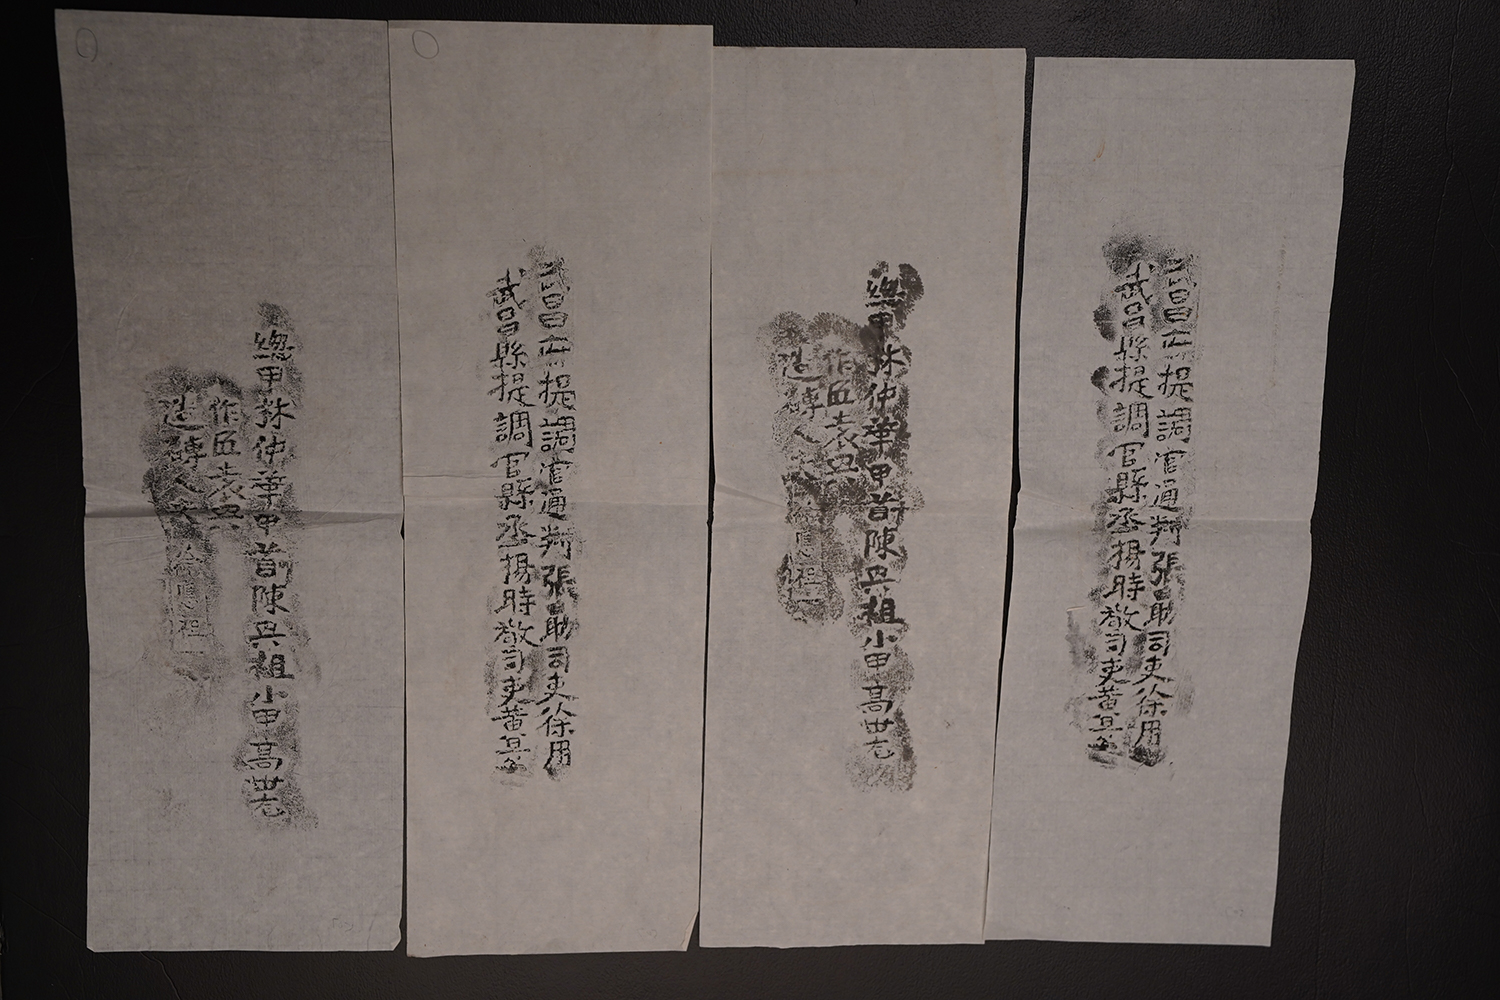 武昌府提調官通判張勗司吏徐用
武昌縣提調官縣丞楊時敬司吏黃
總甲 仲華甲首陳興祖小甲高世志
作匠袁興
造磚人 徐應祖
武昌府提調官通判張勗司吏徐用
武昌縣提調官縣丞楊時敬司吏黃
總甲 仲華甲首陳興祖小甲高世志
作匠袁興
造磚人 徐應祖